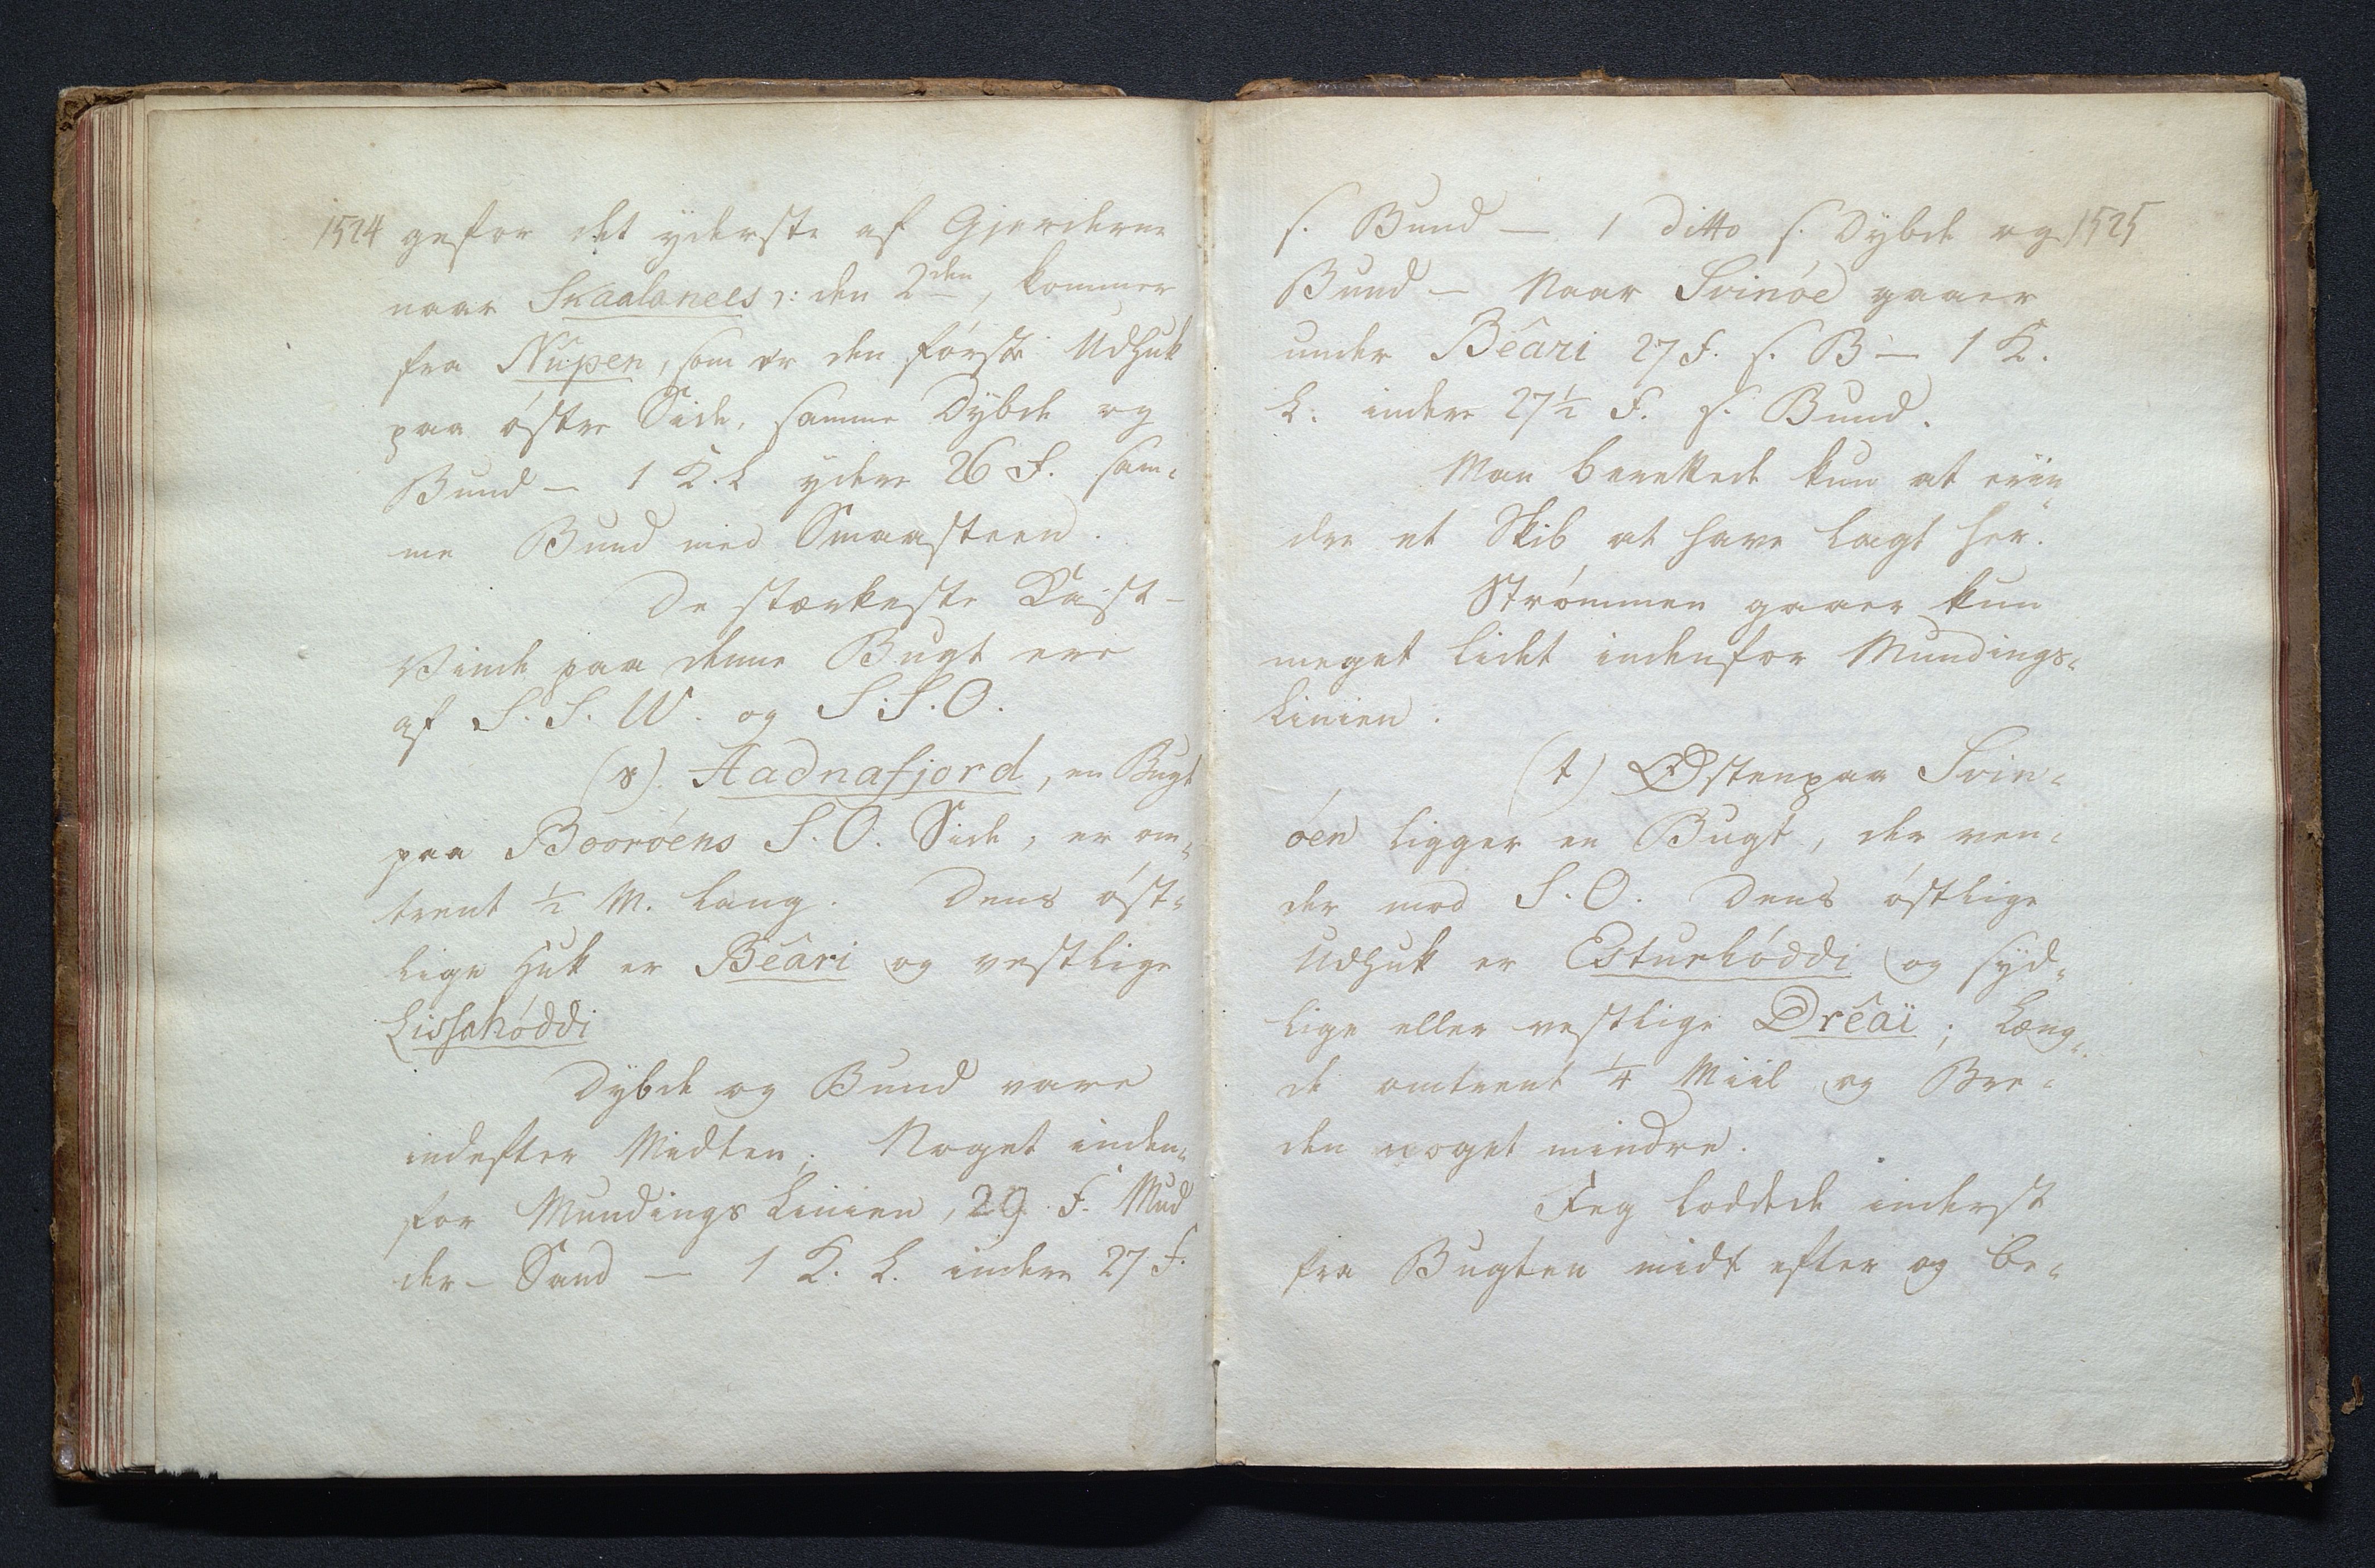 1524 gefor det yderste af Gjerderne
naar Skaalanees ɔ: den 2den, kommer
fra Nûpen, som er den første Udhuk
paa østre Side, samme Dybde og
Bund — 1 K.L ydere 26 F. sam-
me Bund med Smaasteen.
De stærkeste Kast-
Vinde paa denne Bugt ere
af S. S. W. og S.S.O.
(s). Aadnafjord, en Bugt
paa Boorøens S. O. Side, er om-
trent ½ M. lang. Dens øst-
lige Huk er Bêari og vestlige
Lissahøddi
Dybde og Bund vare
indefter Midten; Noget inden-
for Mundings Linien, 29 F. Mud
der- Sand — 1 K. L. indere 27 F.
s. Bund — 1 Ditto s. Dybde og 1525
Bund — Naar Svinøe gaaer
under Bêari 27 F. s. B — 1 K.
L. indere 27½ F. s. Bund.
Man berettede kun at erin-
dre et Skib at have lagt her.
Strømmen gaaer kun
meget lidet indenfor Mundings-
Linien.
(t) Østenpaa Svin-
øen ligger en Bugt, der ven-
der mod S. O. Dens østlige
Udhuk er Esturhøddi og syd-
lige eller vestlige Drêaï; Læng-
de omtrent ¼ Miil og Bre-
den noget mindre.
Jeg loddede inderst
fra Bugten midt efter og be-